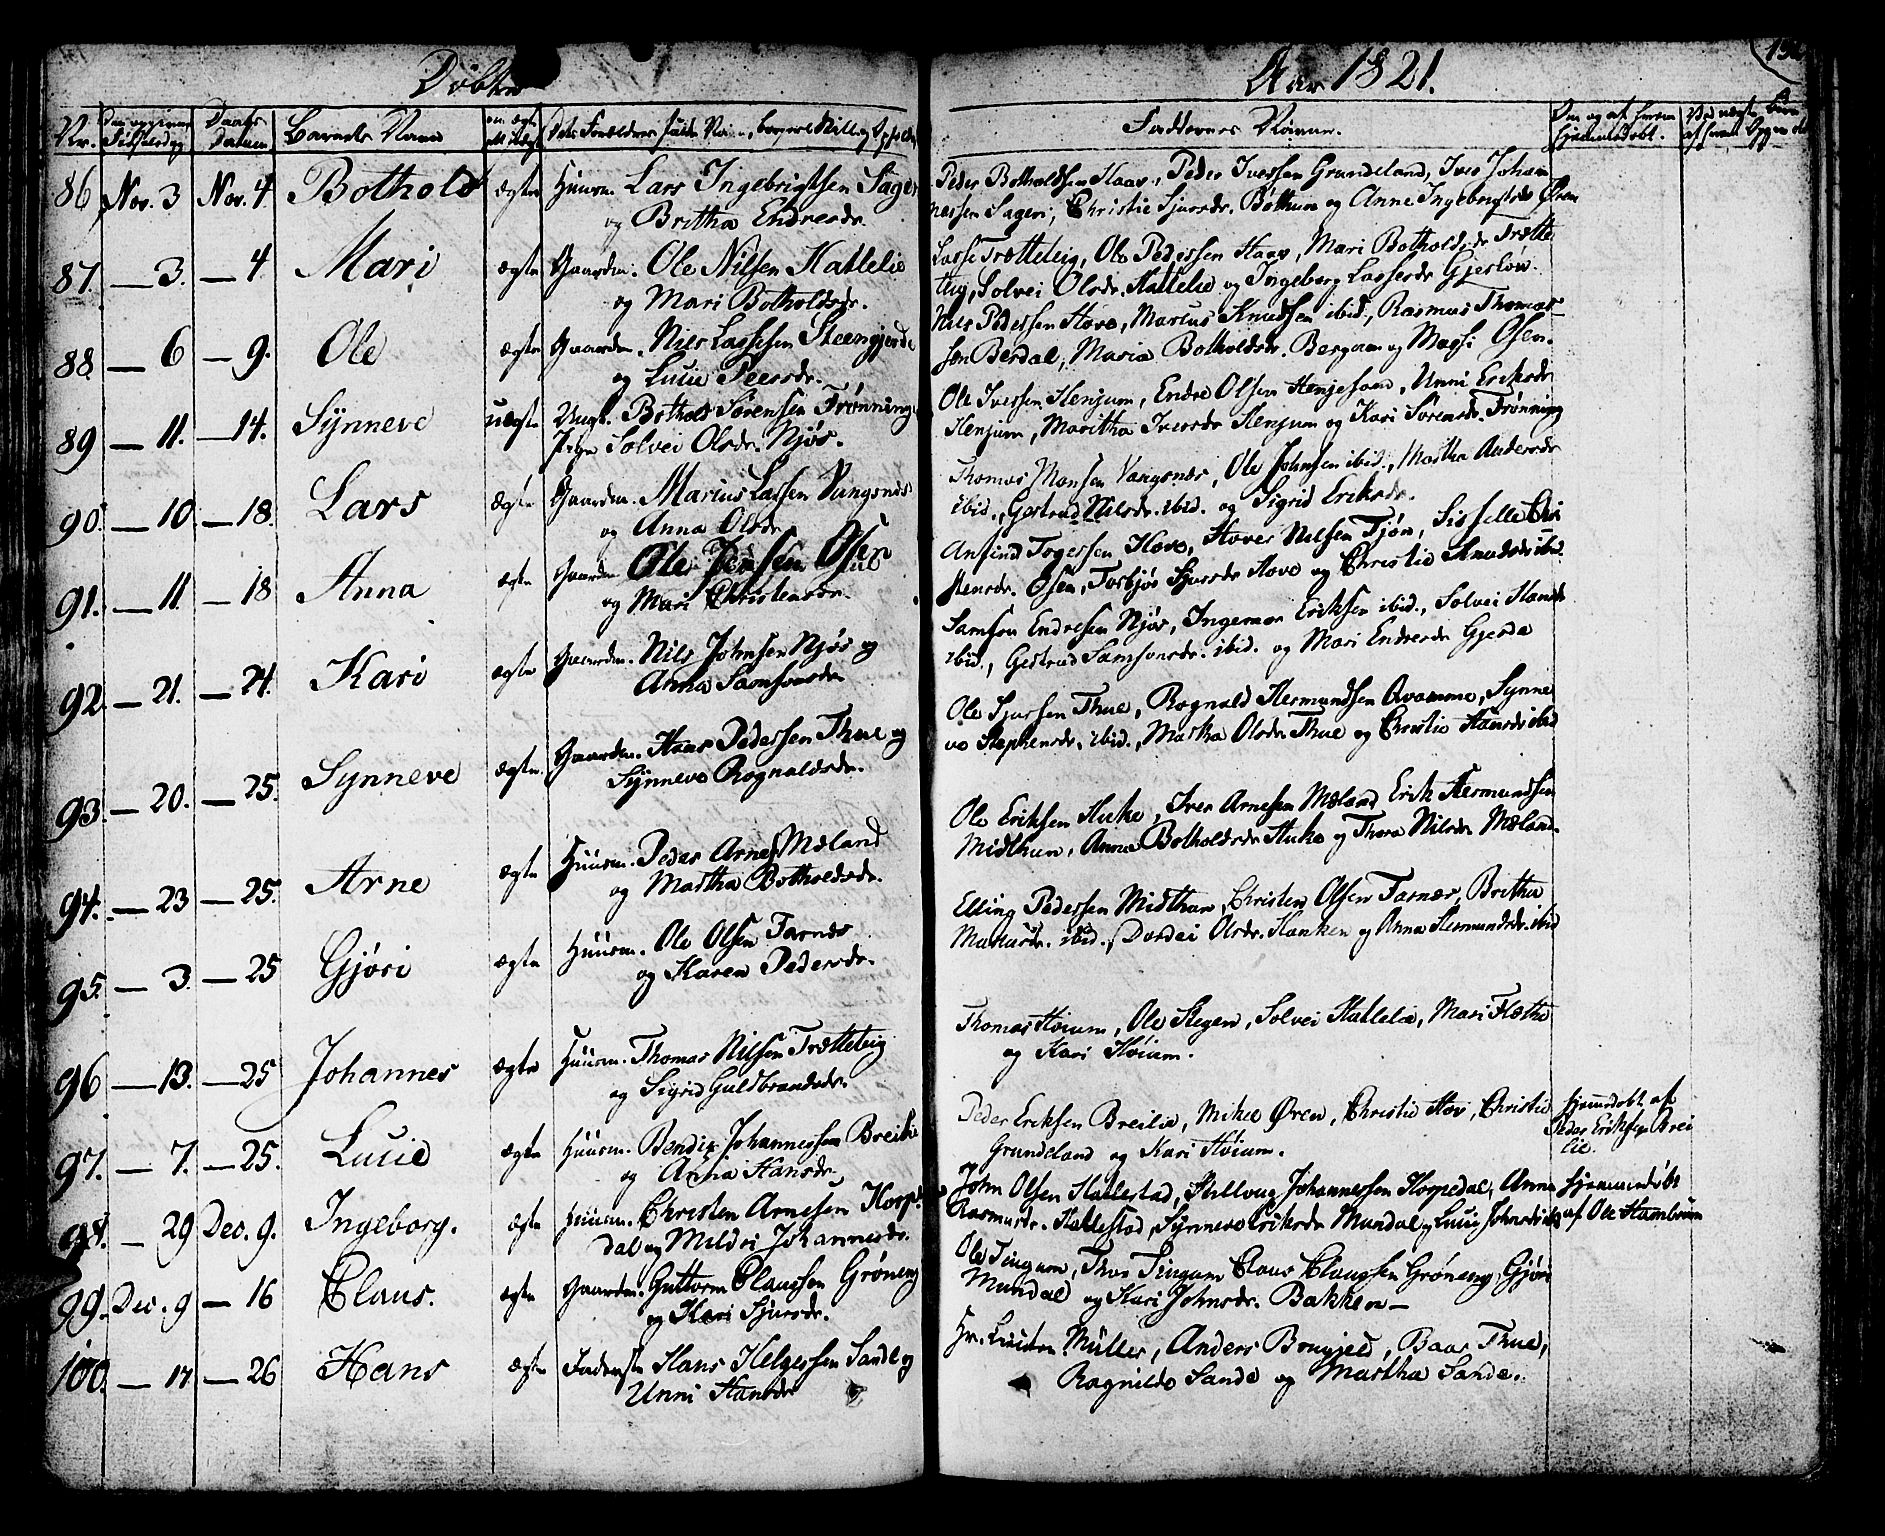 Døbte
Aar 1821.
Nr.
Daabs Datum
Barnets Navn
Faddernes Navne.
86 Nov. 3 Nov. 4 Bothold ægte Huusm. Lars Ingebrigtsen Sageri
og Brittha Endresdr.
Peder Botholdsen Haav, Peder Iversen Grundeland, Iver Johan
nessen Sageri, Christie Sjursdr. Bøthun og Anne Ingebrigtsdr Øren
87. — 3. — 4 Mari ægte Gaardm. Ole Nilsen Hatlelie
og Mari Botholdsdr.
Lasse Trætteteig, Ole Pedersen Haav, Mari Botholdsdr Trætte
teig, Solvei Olsdr. Hatlelie og Ingeborg Lassesdr Gjesløv.
88. — 6 — 9. Ole ægte Gaardm. Nils Lassesen Steengjerde
og Lucie Peersdr.
Nils Pedersen Hove, Marcus Knudsen ibid., Rasmus Thomas-
sen Berdal, Maria Botholdsdr. Bergum og Magli Osen.
89 — 11. — 14. Synneve uægte Ungk. Bothold Sørensen Frønninge
Pige Solvei Olsdr. Njøs.
Ole Iversen Henjum, Endre Olsen Henjesand, Unni Eriksdr
Henjum, Maritha Iversdr Henjum og Kari Sørensdr. Frønning
90. — 10. — 18. Lars ægte Gaardm. Marius Lassen Vangsnes
og Anna Olsdr.
Thomas Monsen Vangsnæs, Ole Johnsen ibid., Martha Andersdr
ibid., Gertrud Nilsdr. ibid. og Sigrid Eriksdr.
91. — 11. — 18 Anna ægte Gaardm. Ole Jensen Osen
og Mari Christensdr.
Anfind Togersen Hove, Hover Nilsen Tjøn, Sisselle Chri
stensdr. Osen, Torbjør Sjursdr Hove og Christie Knudsdr ibid.
92. — 21. — 24. Kari ægte Gaardm. Nils Johnsen Njøs og
Anna Samsonsdr
Samson Endresen Njøs, Ingemar Eriksen ibid., Solvei Hansdr
ibid., Gertrud Samsonsdr. ibid. og Mari Endresdr Gjerde
93. — 20. — 25. Synneve ægte. Gaardm. Hans Pedersen Thue og
Synneve Rognaldsdr.
Ole Sjursen Thue, Rognald Hermundsen Qvamme, Synne
ve Stephensdr. ibid., Martha Olsdr Thue og Christie Hansdr ibid
94. — 23 — 25. Arne ægte Huusm. Peder Arnes. Mæland
og Martha Botholdsdr.
Ole Eriksen Huke, Iver Arnesen Mæland, Erik Hermundsen
Midthun, Anna Botholdsdr Huke og Thora Nilsdr Mæland.
95. — 3. — 25 Gjøri ægte Huusm. Ole Olsen Farnes
og Karen Pedersdr.
Elling Pedersen Midthun, Christen Olsen Farnæs, Britha
Mariusdr. ibid., Dordei Olsdr. Hanken og Anna Hermundsdr. ibid
96 — 13. — 25 Johannes ægte Huusm. Thomas Nilsen Trætteteig
og Sigrid Guldbrandsdr.
Thomas Høium, Ole Stegen, Solvei Hatlelie, Mari Flæthe
og Kari Høium.
97. — 7. — 25. Lucie ægte Huusm. Bendix Johannessen Breilie
og Anna Hansdr.
Peder Eriksen Breilie, Mikel Øren, Christie Hov, Christie
Grundeland og Kari Høium.
hjemmedøbt af
Peder Eriksen Brei
lie.
98. — 29 Dec. 9. Ingeborg. ægte Huusm. Christen Arnesen Horpe
dal og Mildri Johannesdr.
John Olsen Hatlestad, Johannessen Horpedal, Anna
Rasmusdr. Hatlestad, Synneve Eriksdr Mundal og Lucie Johnsdr ibd
hjemmedøbt
af Ole Hambrum
99. Dec. 9 — 16 Claus. ægte Gaardm. Guttorm Claussen Grøneng
og Kari Sjursdr.
Ole Tingum, Thor Tingum, Claus Claussen Grøneng, Gjøri
Mundal og Kari Johnsdr. Bakken —
100. — 17 — 26 Hans ægte Hans Helgessen Sande og
Unni Hansdr
Hr. Müller, Anders Brugjeld, Baar Thue,
Ragnilde Sande og Martha Sande.